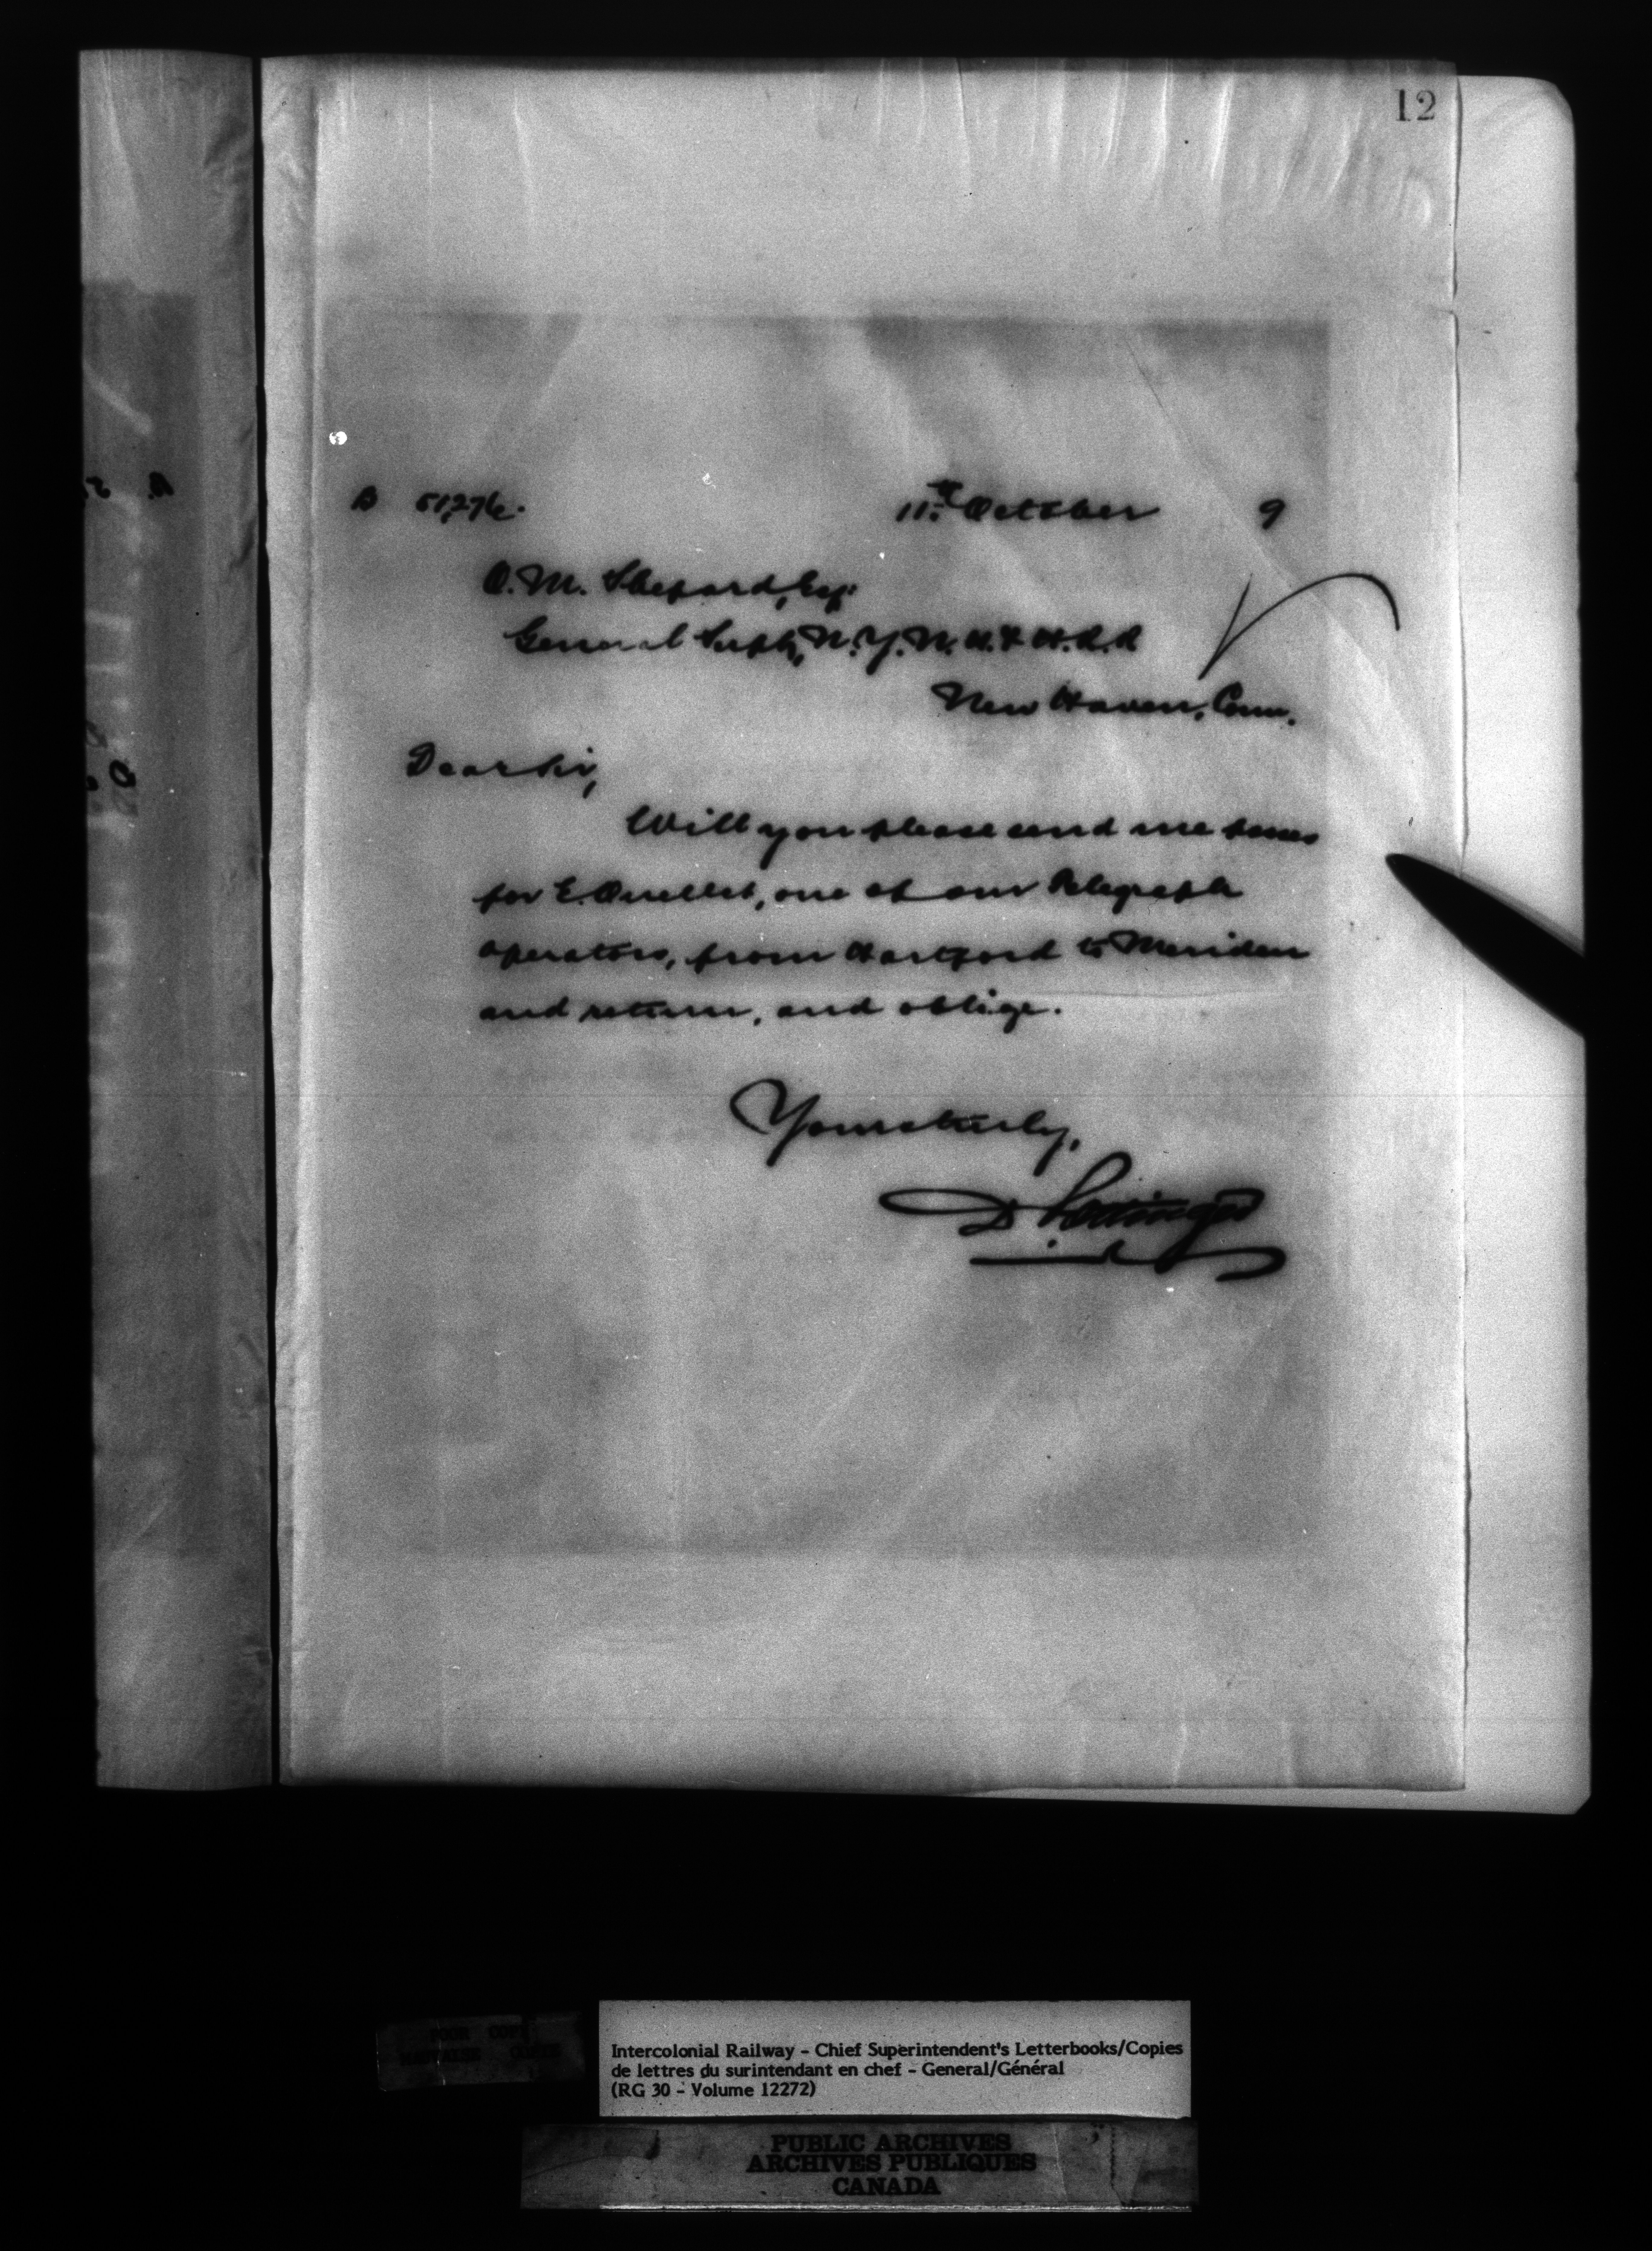 12
B 51,276. 11th October 9
O. M. Shepard, Esq.
General Supt., N. Y. N. H. & H. R. R
New Haven, Conn.
Dear Sir,
Will you please send me passes
for E. Ouellet, one of our Telegraph
operators, from Hartford to Meriden
and return, and oblige.
Yours truly,
D Pottinger
POOR COPY
MAUVAISE COPIE
Intercolonial Railway - Chief Superintendent's Letterbooks/Copies
de lettres du surintendant en chef - General/Général
(RG 30 - Volume 12272)
PUBLIC ARCHIVES
ARCHIVES PUBLIQUES
CANADA